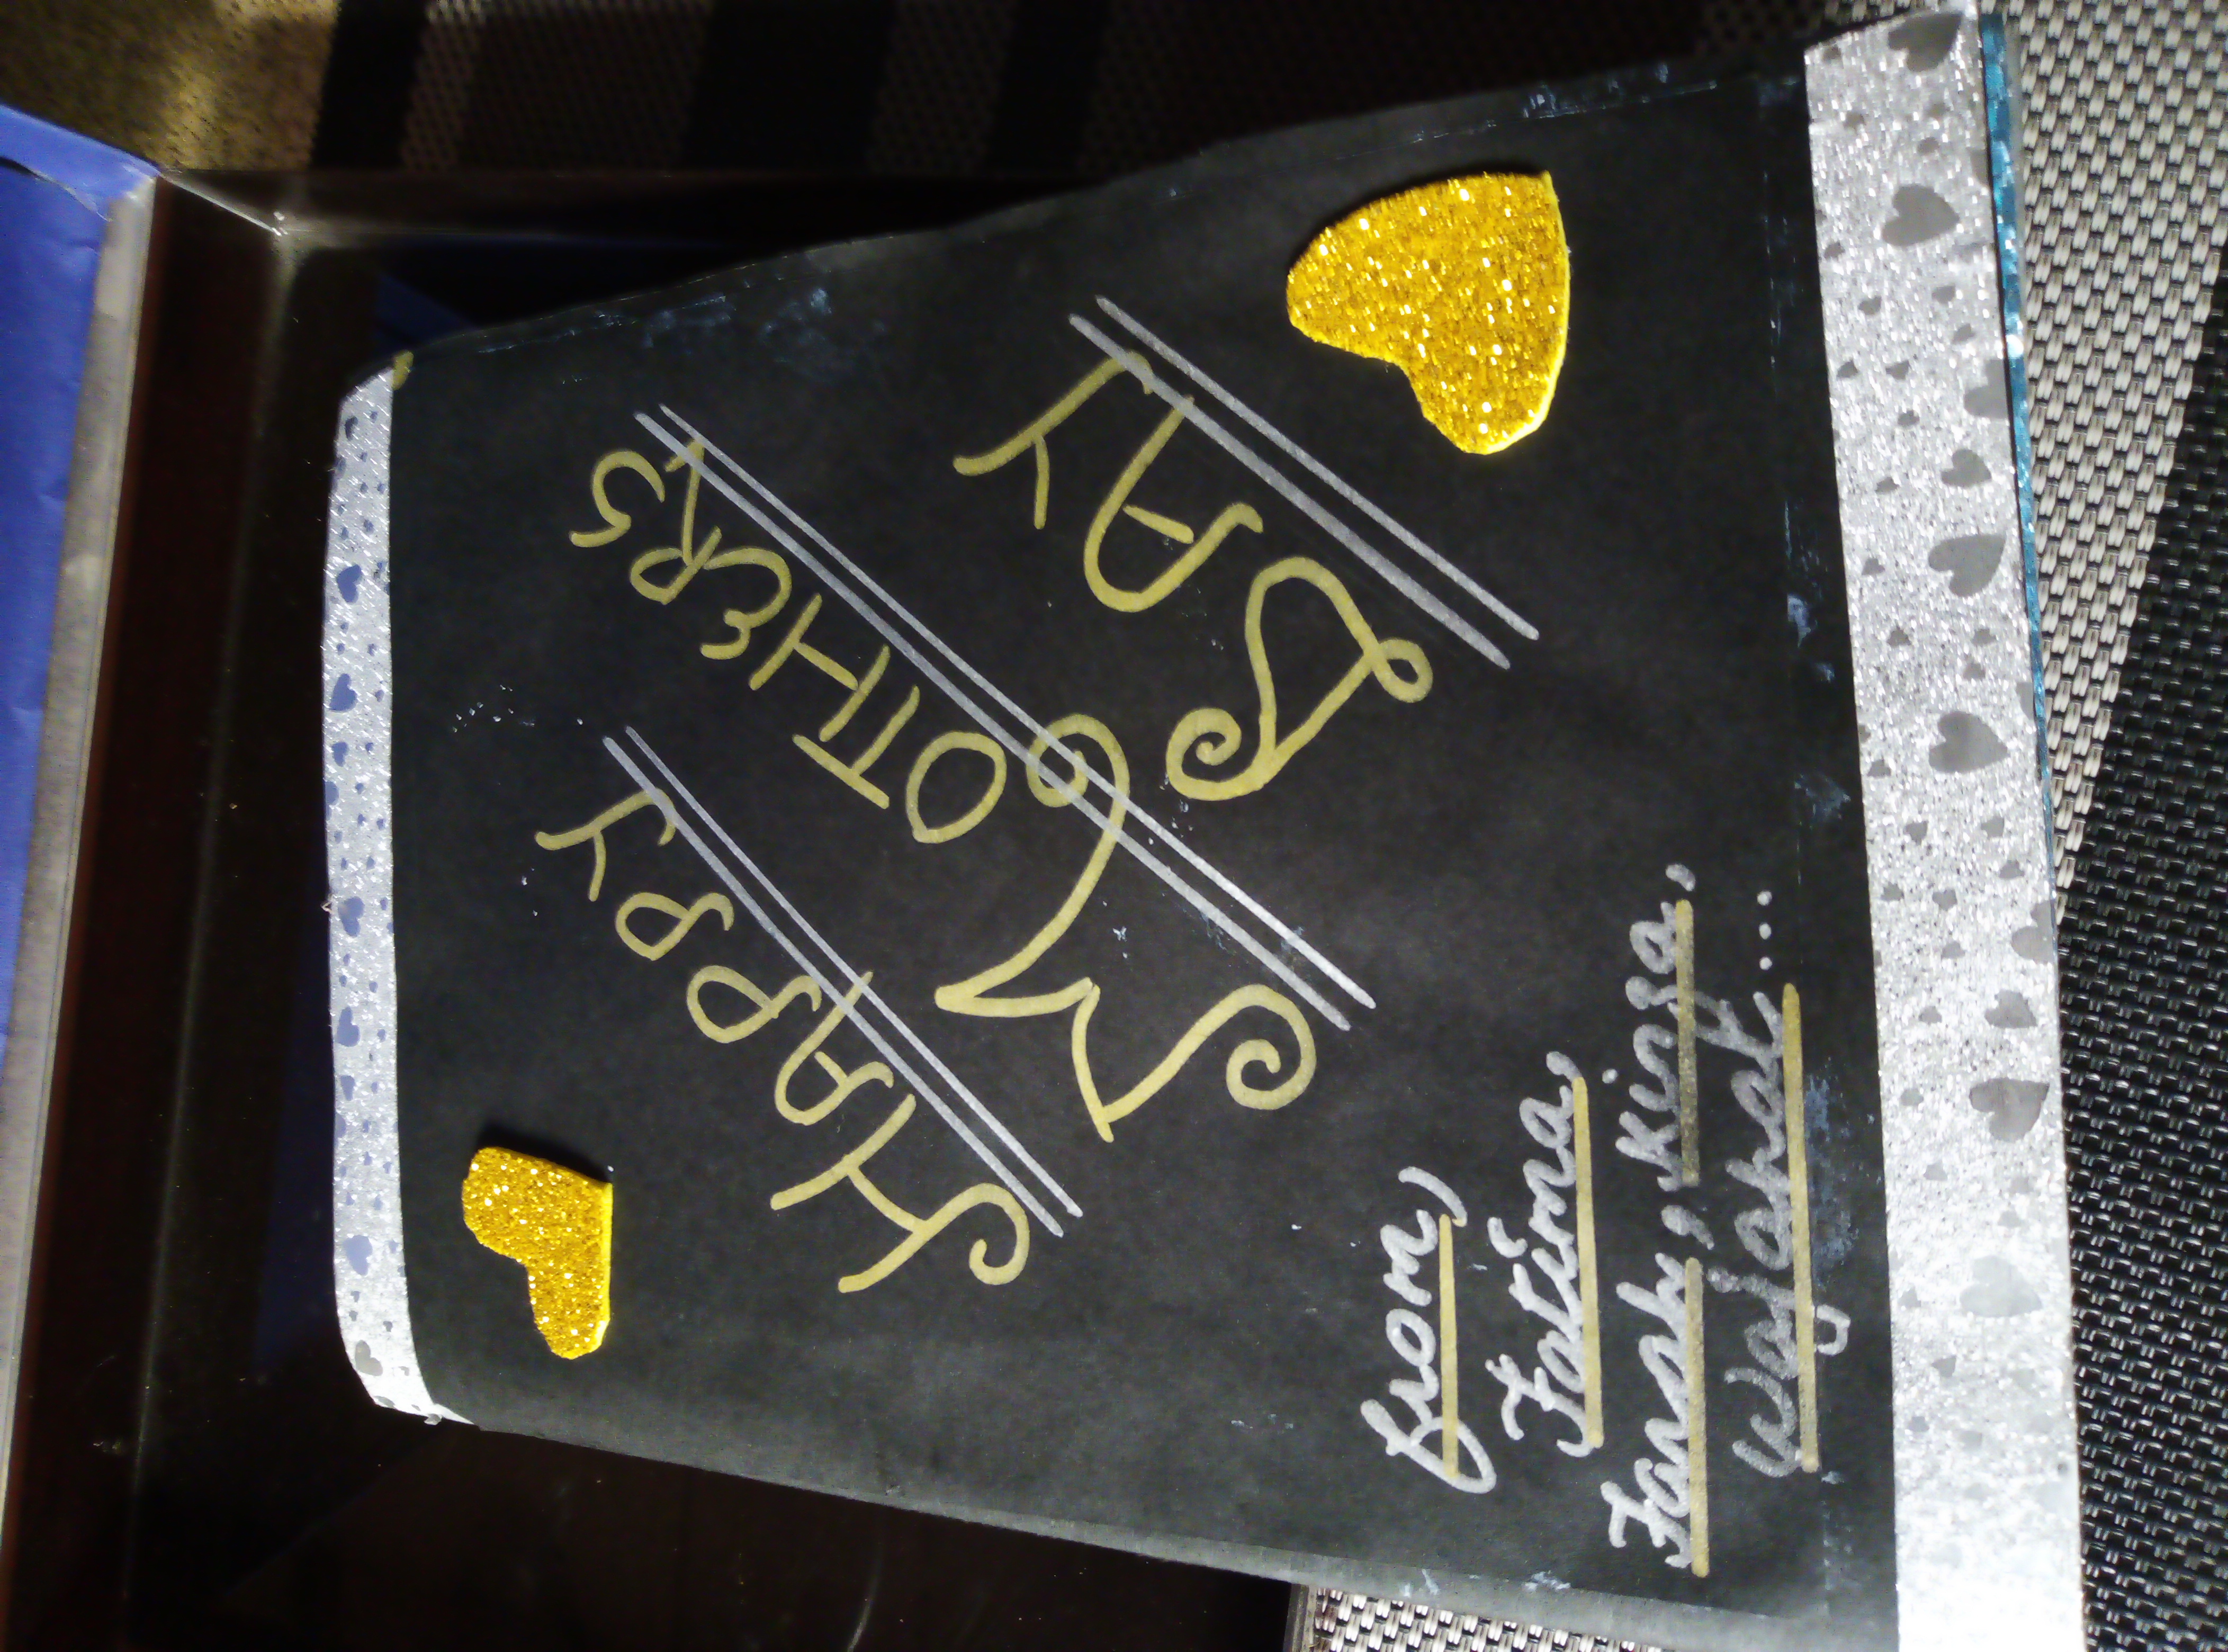 HAPPY
MOTHERS
DAY
from,
Fatima,
Farah, Kinza,
Wajahat....